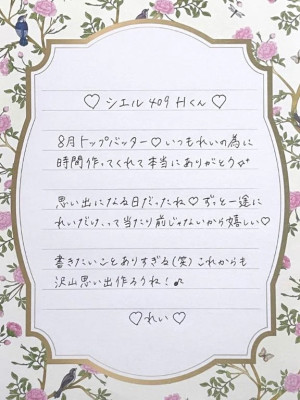 ♡ シエル 409 Hくん ♡
8月トップバッター♡いつもれいの為に
時間作ってくれて本当にありがとう✨
思い出になる日だったね♡ずっと一途に
れいだけ、って当たり前じゃないから嬉しい♡
書きたいことありすぎる(笑)これからも
沢山思い出作ろうね！♪
♡れい♡